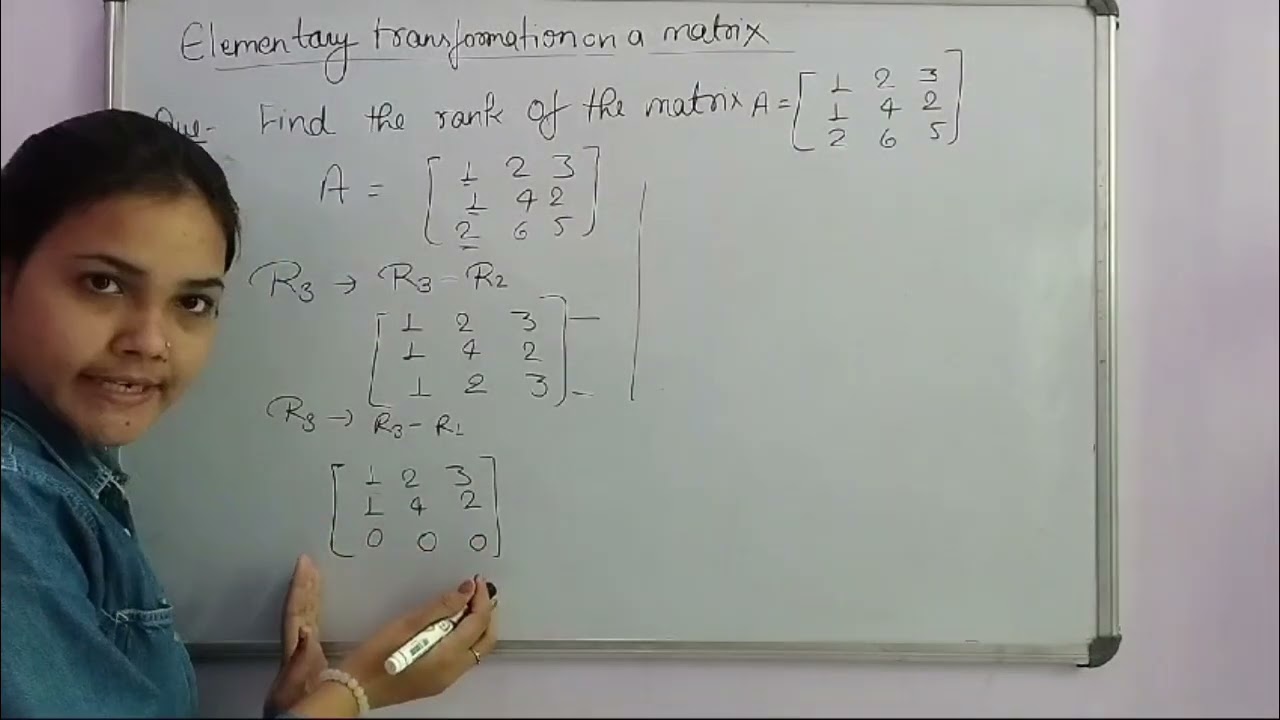 Elementary transformation on a matrix
Que- Find the rank of the matrix A = [ 1 2 3
1 4 2
2 6 5 ]
A = [ 1 2 3
1 4 2
2 6 5 ]
R3 → R3 - R2
[ 1 2 3
1 4 2
1 2 3 ]
R3 → R3 - R1
[ 1 2 3
1 4 2
0 0 0 ]